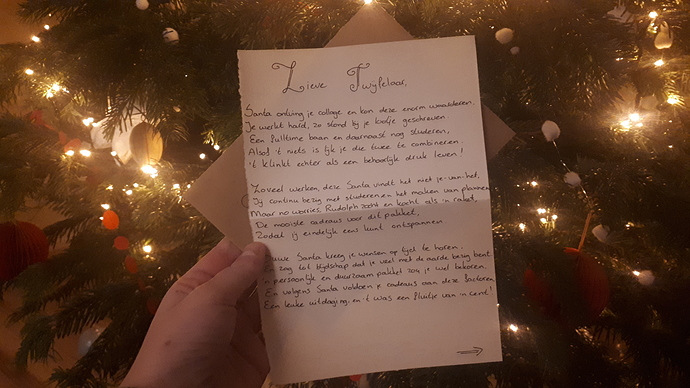 Lieve Twijfelaar,
Santa ontving je collage en kon deze enorm waarderen.
Je werkt hard, zo stond bij je lootje geschreven
Een fulltime baan en daarnaast nog studeren,
Alsof 't niets is lijk je die twee te combineren.
't klinkt echter als een behoorlijk druk leven!
Zoveel werken, deze Santa vindt het niet je-van-het,
Jij continu bezig met studeren en het maken van plannen
Maar no worries, Rudolph zocht en kocht als 'n raket,
De mooiste cadeaus voor dit pakket,
Zodat jij eindelijk eens kunt ontspannen
Santa kreeg je wensen op tijd te horen.
zag tot blijdschap dat je veel met de aarde bezig bent
'n persoonlijk en duurzaam pakket zou je wel bekoren.
En volgens Santa voldoen je cadeaus aan deze factoren,
Een leuke uitdaging en 't was een fluitje van 'n cent!